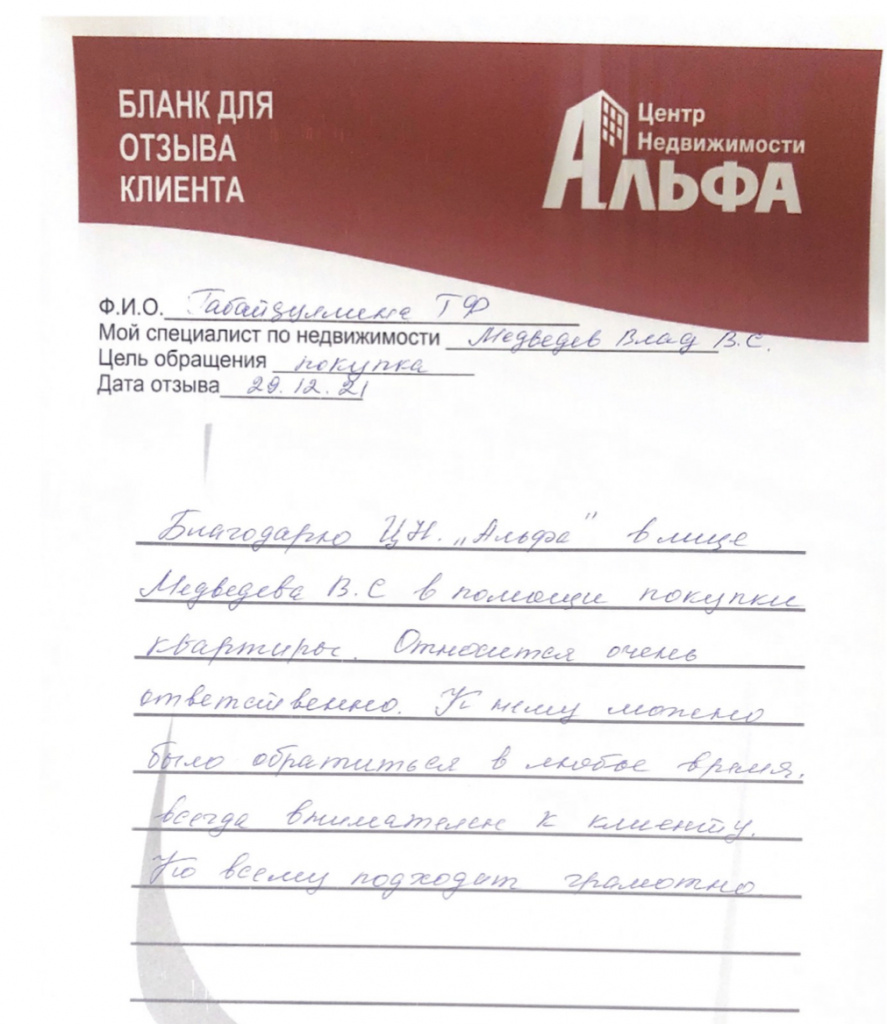 БЛАНК ДЛЯ
ОТЗЫВА
КЛИЕНТА
Центр
Недвижимости
АЛЬФА
Ф.И.О. Габайдуллина Г Ф
Мой специалист по недвижимости Медведев Влад В.С.
Цель обращения покупка
Дата отзыва 29.12.21
Благодарю Ц.Н. „Альфа" в лице
Медведева В.С в помощи покупки
квартиры. Относится очень
ответственно. К нему можно
было обратиться в любое время,
всегда внимателен к клиенту.
Ко всему подходит грамотно